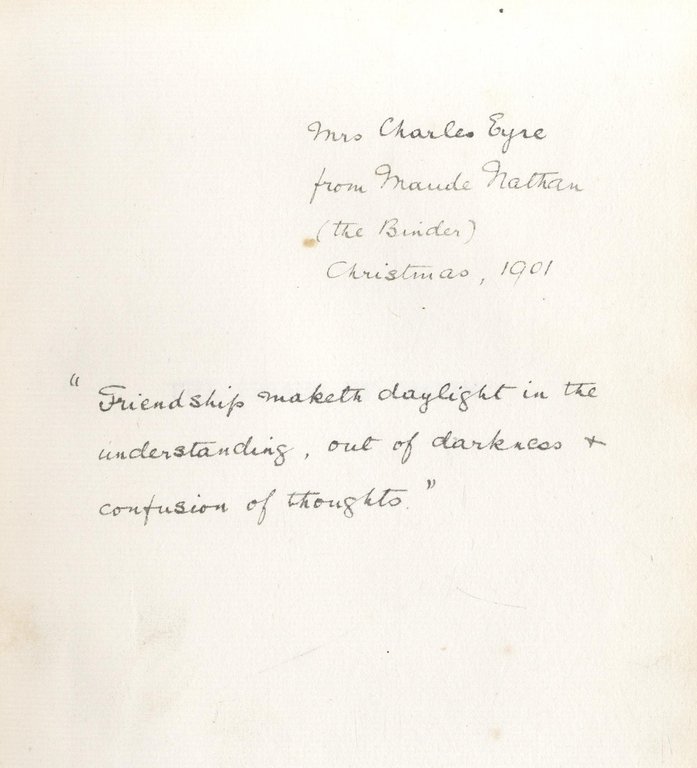 Mrs Charles Eyre
from Maude Nathan
(the Binder)
Christmas, 1901
"Friendship maketh daylight in the
understanding, out of darkness +
confusion of thoughts."